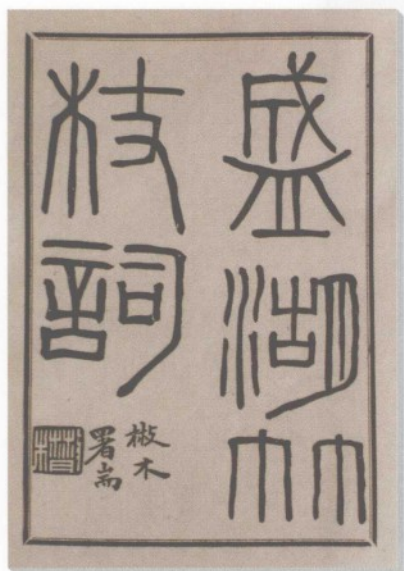 盛湖竹
枝詞
檆木
署耑